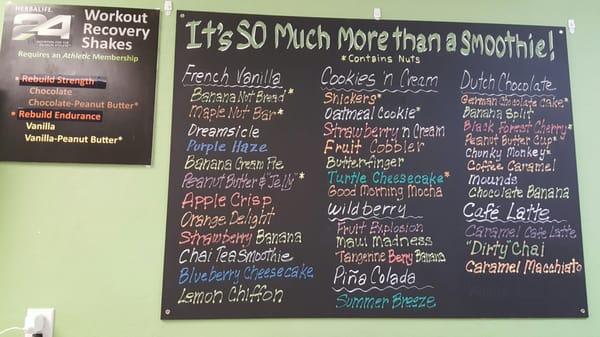 HERBALIFE
24
Workout
Recovery
Shakes
Requires an Athletic Membership
* Rebuild Strength
Chocolate
Chocolate-Peanut Butter*
* Rebuild Endurance
Vanilla
Vanilla-Peanut Butter*
It's SO Much More than a Smoothie!
*Contains Nuts
French Vanilla
Banana Nut Bread*
Maple Nut Bar*
Dreamsicle
Purple Haze
Banana Cream Pie
Peanut Butter & "Jelly"*
Apple Crisp
Orange Delight
Strawberry Banana
Chai Tea Smoothie
Blueberry Cheesecake
Lemon Chiffon
Cookies 'n Cream
Snickers*
Oatmeal Cookie*
Strawberry n Cream
Fruit Cobbler
Butterfinger
Turtle Cheesecake*
Good Morning Mocha
Wildberry
Fruit Explosion
Maui Madness
Tangerine Berry Banana
Piña Colada
Summer Breeze
Dutch Chocolate
German Chocolate Cake*
Banana Split
Black Forest Cherry*
Peanut Butter Cup*
Chunky Monkey*
Coffee Caramel
Mounds
Chocolate Banana
Café Latte
Caramel Cafe Latte
"Dirty" Chai
Caramel Macchiato